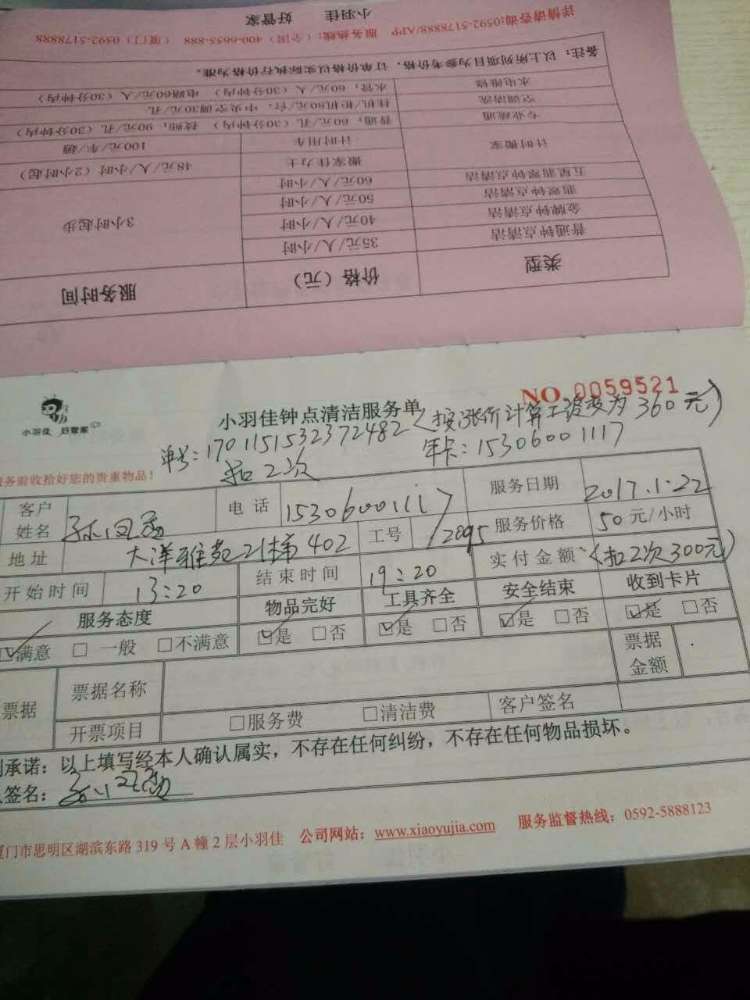 详情请咨询:0592-5178888/APP 服务热线:(全国) 400-6655-888 (厦门) 0592-5178888
小羽佳 好管家
类型 价格(元) 服务时间
普通钟点清洁 35元/人/小时 3小时起步
金牌钟点清洁 40元/人/小时
翡翠钟点清洁 50元/人/小时
五星翡翠钟点清洁 60元/人/小时
计时搬家 搬家佳力士 48元/人/小时(2小时起)
计时用车 100元/车/趟
专业疏通 普通,60元/孔(30分钟内) 技师,90元/孔(30分钟内)
空调清洗 挂机/柜机80元/台,中央空调30元/孔
水电维修 水管,60元/人(30分钟内) 电路60元/人(30分钟内)
备注:以上所列项目为参考价格,订单价格以实际执行价格为准。
小羽佳 好管家
小羽佳钟点清洁服务单
NO.0059521
(按涨价计算工资变为360元)
单号:1701151532372482
年卡:15306001117
扣2次
务验收拾好您的贵重物品!
客户姓名 电话 15306001117 服务日期 2017.1.22
地址 大洋雅苑21梯402 工号 12895 服务价格 50元/小时
开始时间 13:20 结束时间 19:20 实付金额 (扣2次300元)
服务态度 物品完好 工具齐全 安全结束 收到卡片
☑满意 □一般 □不满意 ☑是 □否 ☑是 □否 ☑是 □否 ☑是 □否
票据 票据名称 票据金额
开票项目 □服务费 □清洁费 客户签名
承诺:以上填写经本人确认属实,不存在任何纠纷,不存在任何物品损坏。
签名:
厦门市思明区湖滨东路319号A幢2层小羽佳 公司网站:www.xiaoyujia.com 服务监督热线:0592-5888123